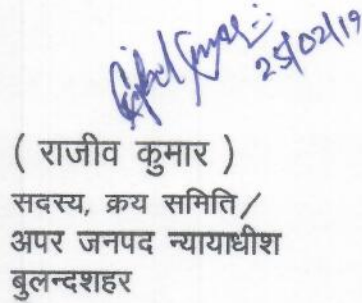 25/02/19
( राजीव कुमार )
सदस्य, क्रय समिति/
अपर जनपद न्यायाधीश
बुलन्दशहर